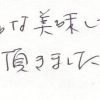 な美味し
頂きました